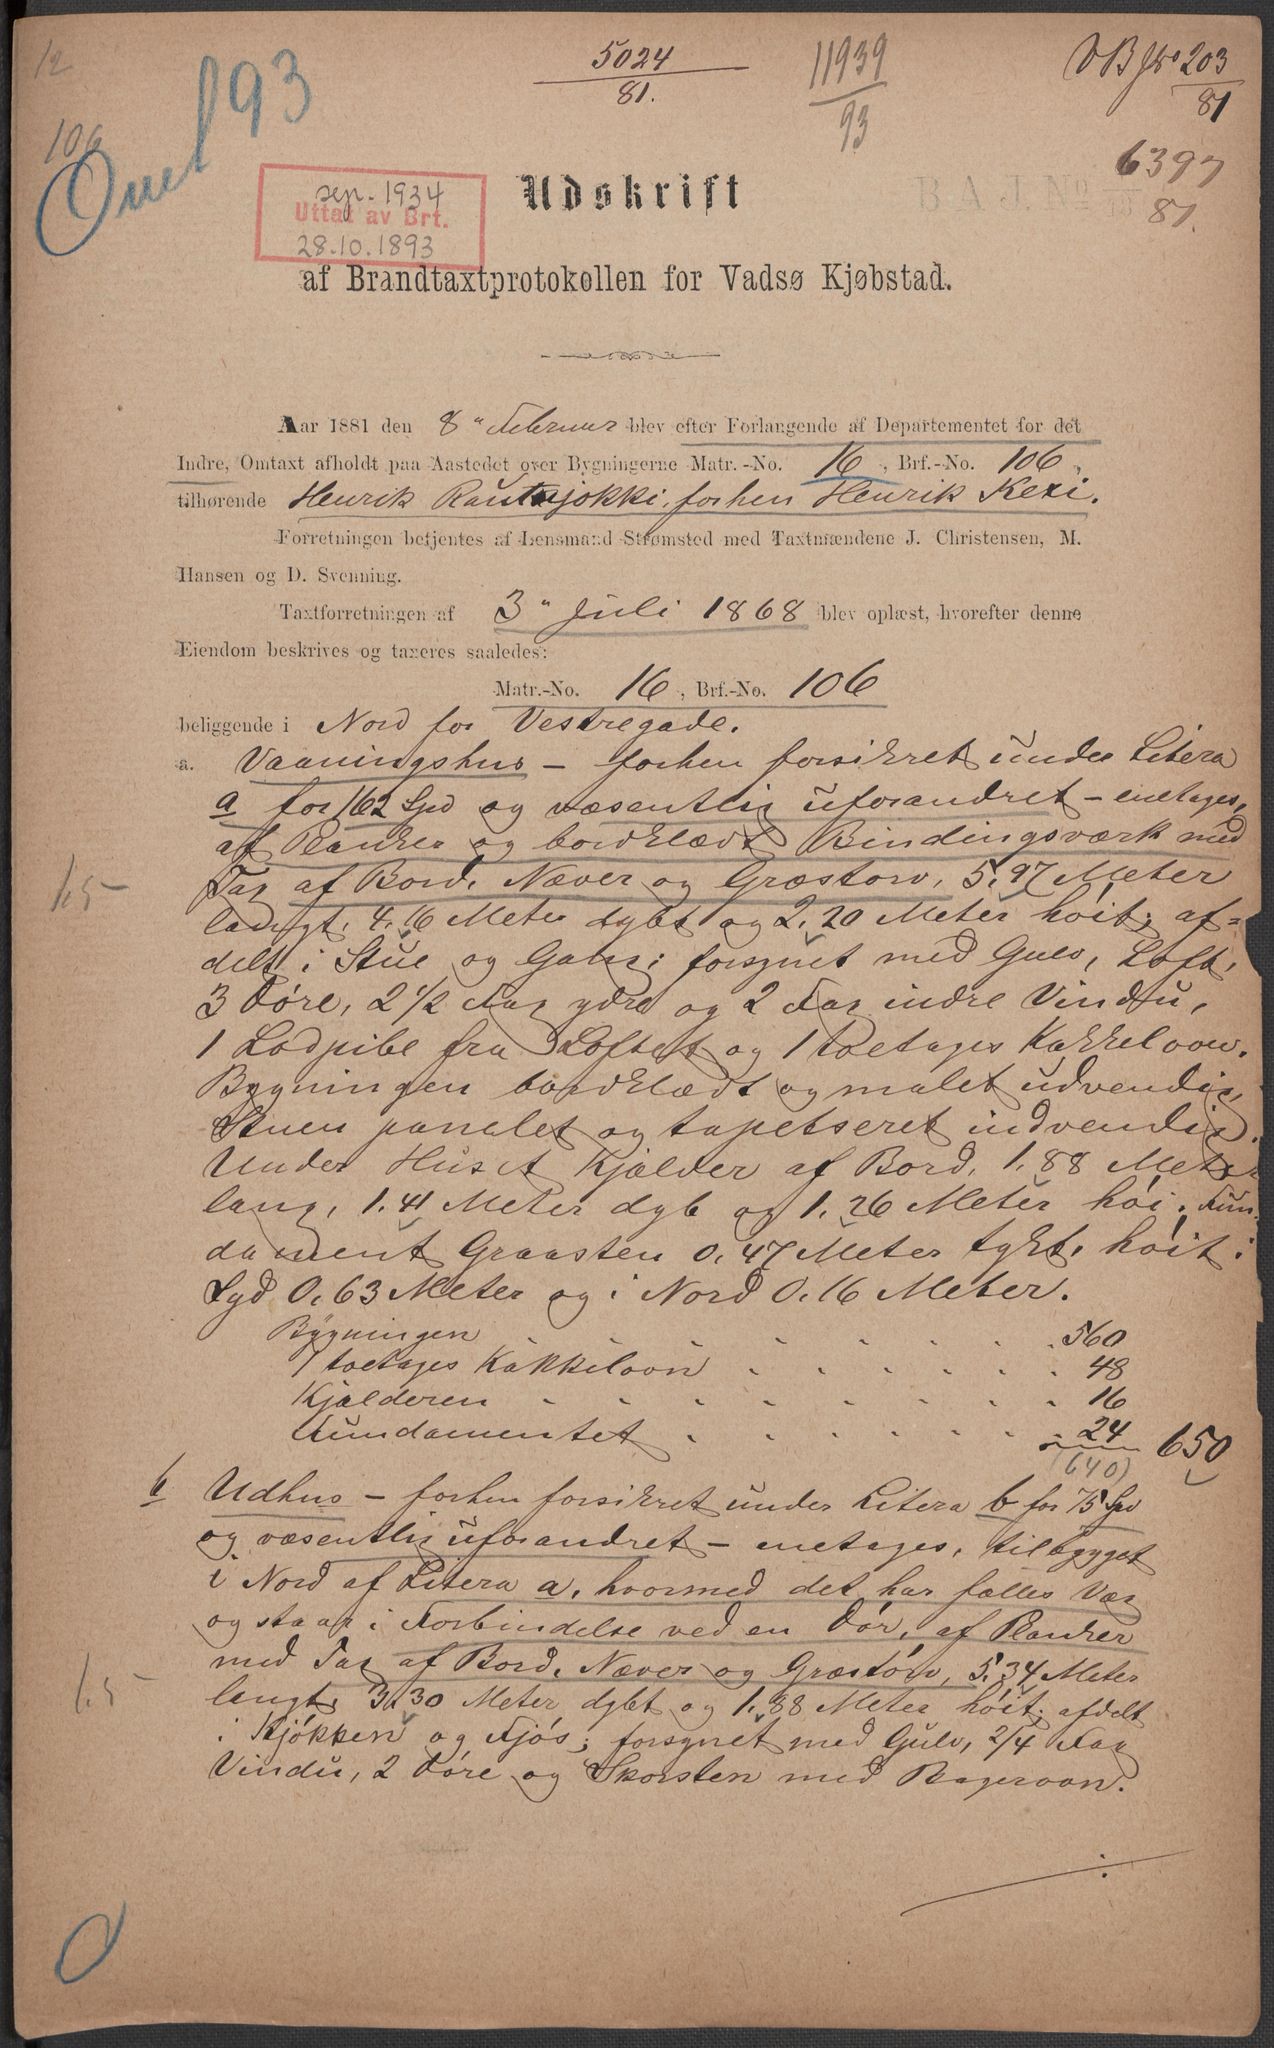 12
Omt 93
106
5024
81.
11939
93
VBJNo 203
81
6397
81.
B A J. No
sep. 1934
Uttat av Brt.
28.10.1893
Udskrift
af Brandtaxtprotokollen for Vadsø Kjøbstad.
Aar 1881 den 8de Februar blev efter Forlangende af Departementet for det
Indre, Omtaxt afholdt paa Aastedet over Bygningerne Matr.-No. 16, Brf.-No. 106,
tilhørende Henrik Rautajokki, forhen Henrik Kexi.
Forretningen betjentes af Lensmand Strømsted med Taxtmændene J. Christensen, M.
Hansen og D. Svenning.
Taxtforretningen af 3" Juli 1868 blev oplæst, hvorefter denne
Eiendom beskrives og taxeres saaledes:
Matr.-No. 16, Brf.-No. 106
beliggende i Nord for Vestregade.
a. Vaaningshus – forhen forsikret under Litera
a for 162 Spd og væsentlig uforandret – enetages,
af Planker og bordklædt Bindingsværk med
Tag af Bord, Næver og Græstorv, 5,97 Meter
langt, 4,16 Meter dybt og 2,20 Meter høit; af-
delt i Stue og Gang; forsynet med Gulv, Loft,
3 Døre, 2 1/2 Fag ydre og 2 Fag indre Vindu,
1 Lodpibe fra Loftet og 1 toetages Kakkelovn.
Bygningen bordklædt og malet udvendig,
Stuen panelet og tapetseret indvendig.
Under Huset Kjælder af Bord, 1,88 Meter
lang, 1,41 Meter dyb og 1,26 Meter høi. Fun-
dament Graasten 0,47 Meter tykt, høit i
Syd 0,63 Meter og i Nord 0,16 Meter.
Bygningen . . . . . . 560
1 toetages Kakkelovn . . . . . . 48
Kjælderen . . . . . . . 16
Fundamentet . . . . . . 24 650
(640)
b Udhus – forhen forsikret under Litera b for 75 Spd
og væsentlig uforandret – enetages, tilbygget
i Nord af Litera a, hvormed det har fælles Væg
og staar i Forbindelse ved en Dør, af Planker
med Tag af Bord, Næver og Græstorv, 5,34 Meter
langt, 3,30 Meter dybt og 1,88 Meter høit; afdelt
i Kjøkken og Fjøs; forsynet med Gulv, 2/4 Fag
Vindu, 2 Døre og Skorsten med Bagerovn.
1.5
1.5